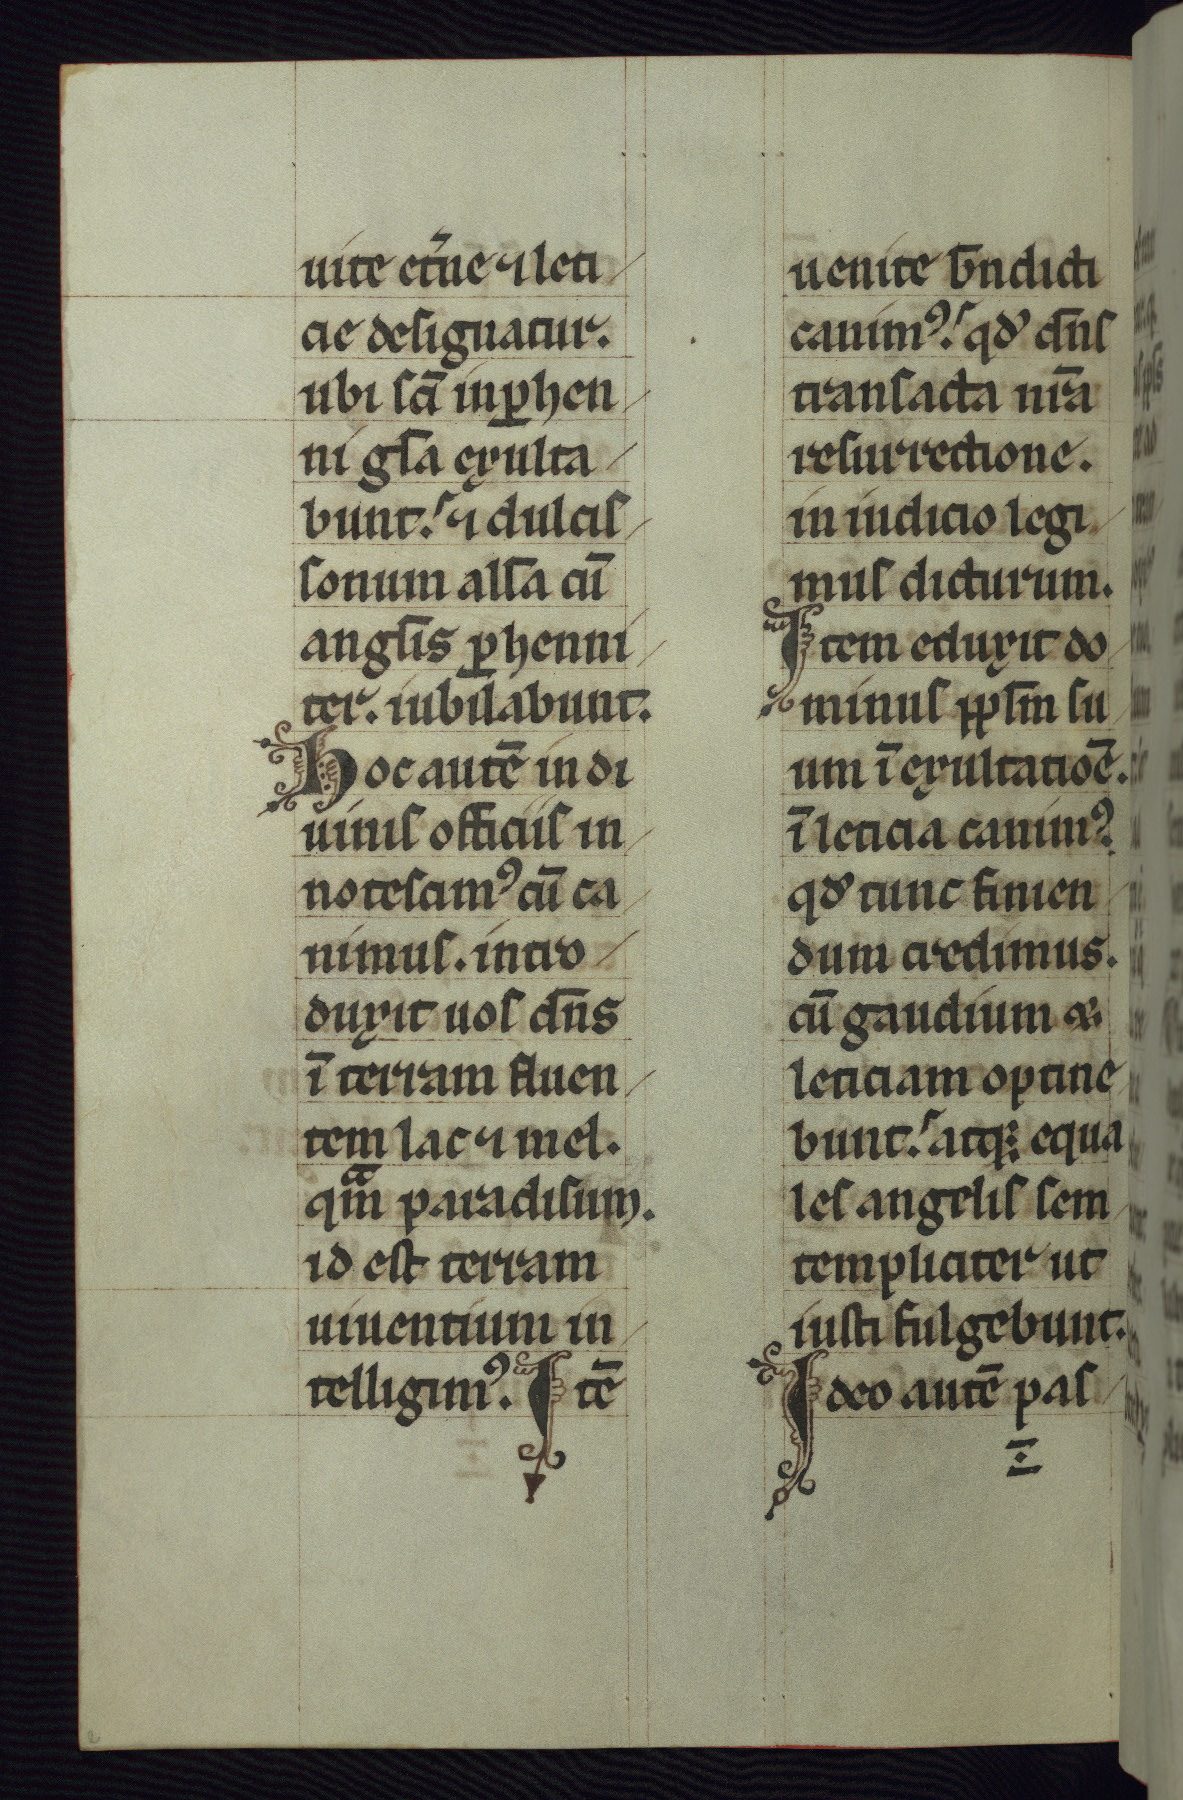 uite et̾ne ⁊ leti
cie designatur.
ubi sc̄i in ꝑhen
ni gl̄a exulta
bunt. ⁊ dulcis
sonum all̄a cū
angl̄is ꝑhenni
ter. iubilabunt.
Hoc autē in di
uinis officiis in
notescimꝰ cū ca
nimus. intro
duxit uos dn̄s
ī terram fluen
tem lac ⁊ mel.
qm̄ paradisum.
id est terram
uiuentium in
telligimꝰ. Itē
uenite bn̄dicti
canimꝰ. qd̓ dn̄s
transacta nr̄a
resurrectione.
in iudicio legi
mus dicturum.
Item eduxit do
minus pp̄lm su
um ī exultatiōe.
ī leticia canimꝰ.
qd̓ tunc finien
dum credimus.
cū gaudium &
leticiam optine
bunt. atqꝫ equa
les angelis sem
templiciter ut
iusti fulgebunt.
Ideo autē pas